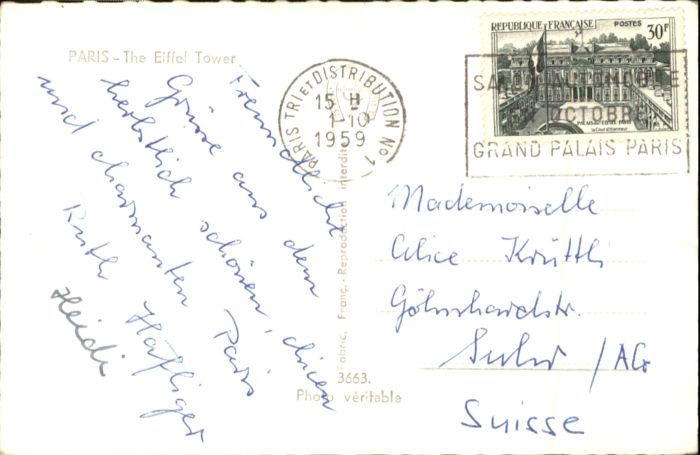 PARIS - The Eiffel Tower
Freundliche
Grüsse aus dem
herbstlich schönen,
und charmanten Paris
Ruth Häfliger
Heidi
PARIS TRI ET DISTRIBUTION No 1
15 H
1-10
1959
REPUBLIQUE FRANÇAISE POSTES
30F
PALAIS DE L'ELYSEE PARIS
la Cour d'Honneur
OCTOBRE
GRAND PALAIS PARIS
Mademoiselle
Alice Krüttli
Suhr / AG
Suisse
Fabric. Franç. - Reproduction interdite
3663.
Photo véritable